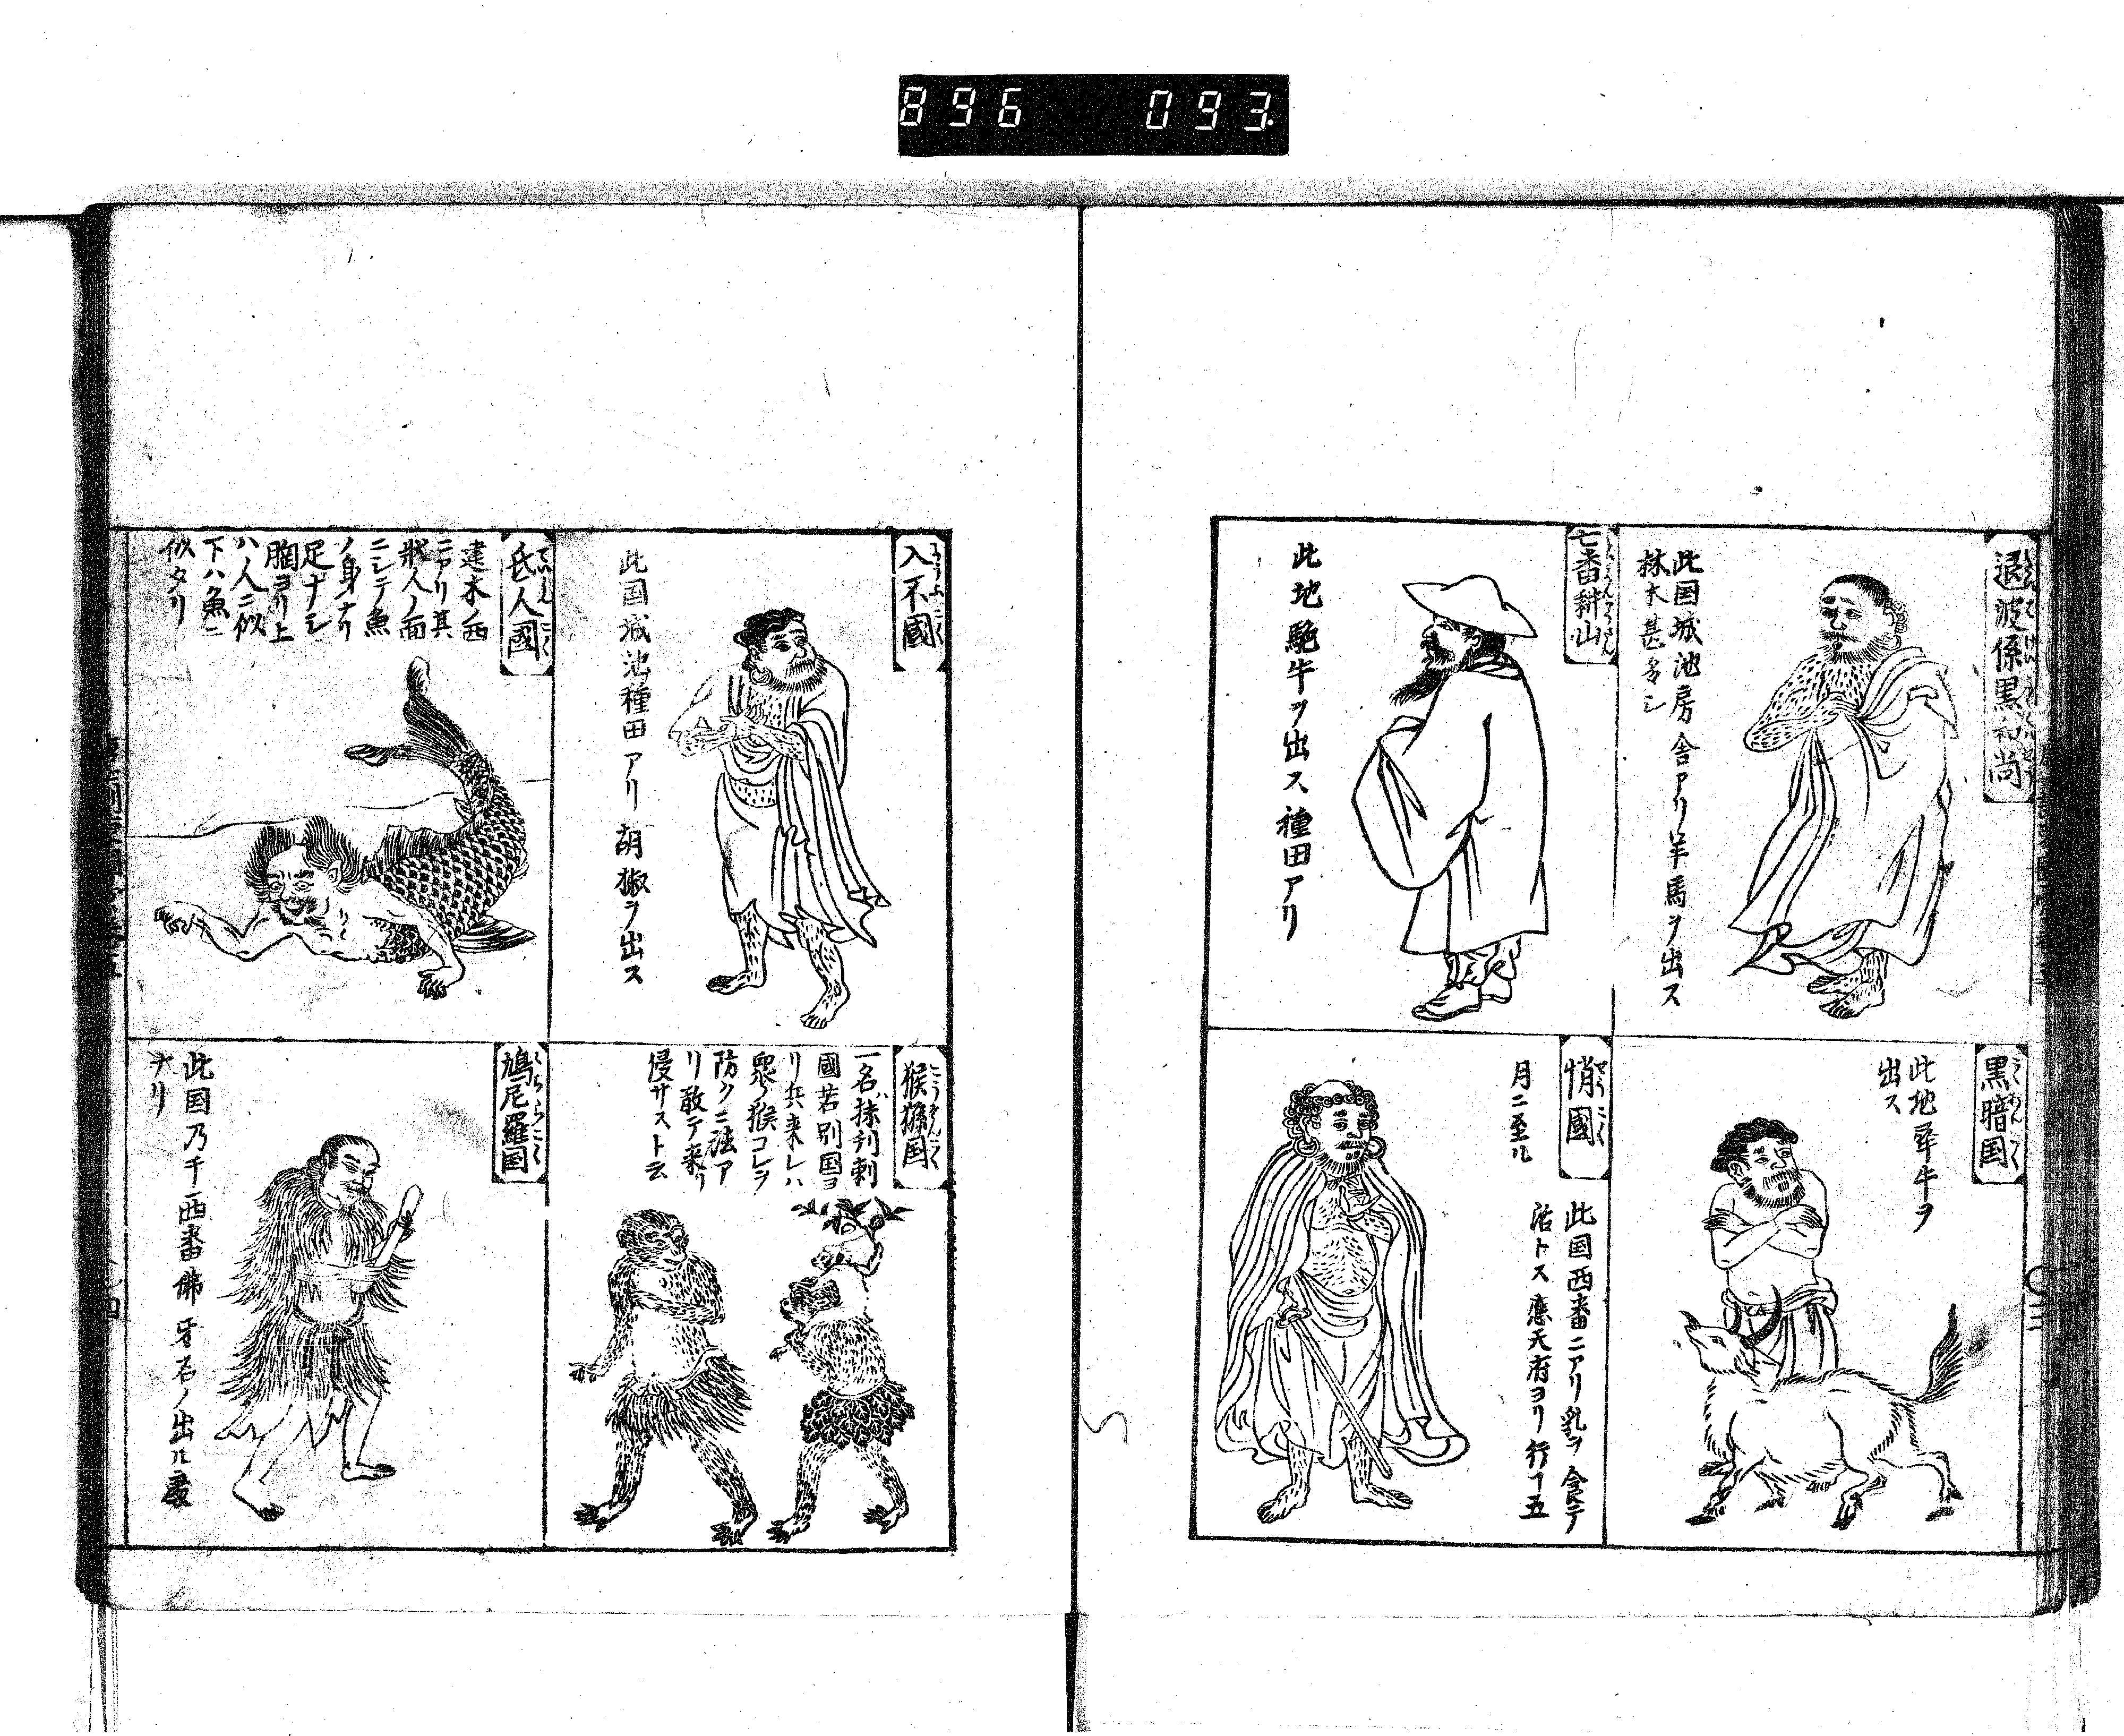 896 093
退波係黒和尚
此国城池房舎アリ羊馬ヲ出ス
林木甚多シ
七番耕山
此地駞牛ヲ出ス種田アリ
黒暗国
此地犛牛ヲ
出ス
悄國
此国西番ニアリ乳ヲ食テ
活トス應天府ヨリ行ヿ五
月ニ至ル
入不國
此国城池種田アリ胡椒ヲ出ス
氐人國
建木ノ西
ニアリ其
狀人ノ面
ニシテ魚
ノ身ナリ
足ナシ
胸ヨリ上
ハ人ニ似
下ハ魚ニ
似タリ
猴猻国
一名ハ抹利剌
國若別国ヨ
リ兵来レハ
衆猴コレヲ
防クニ法ア
リ敢テ来リ
侵サスト云
鳩尼羅国
此国乃チ西番佛牙石ノ出ル處
ナリ